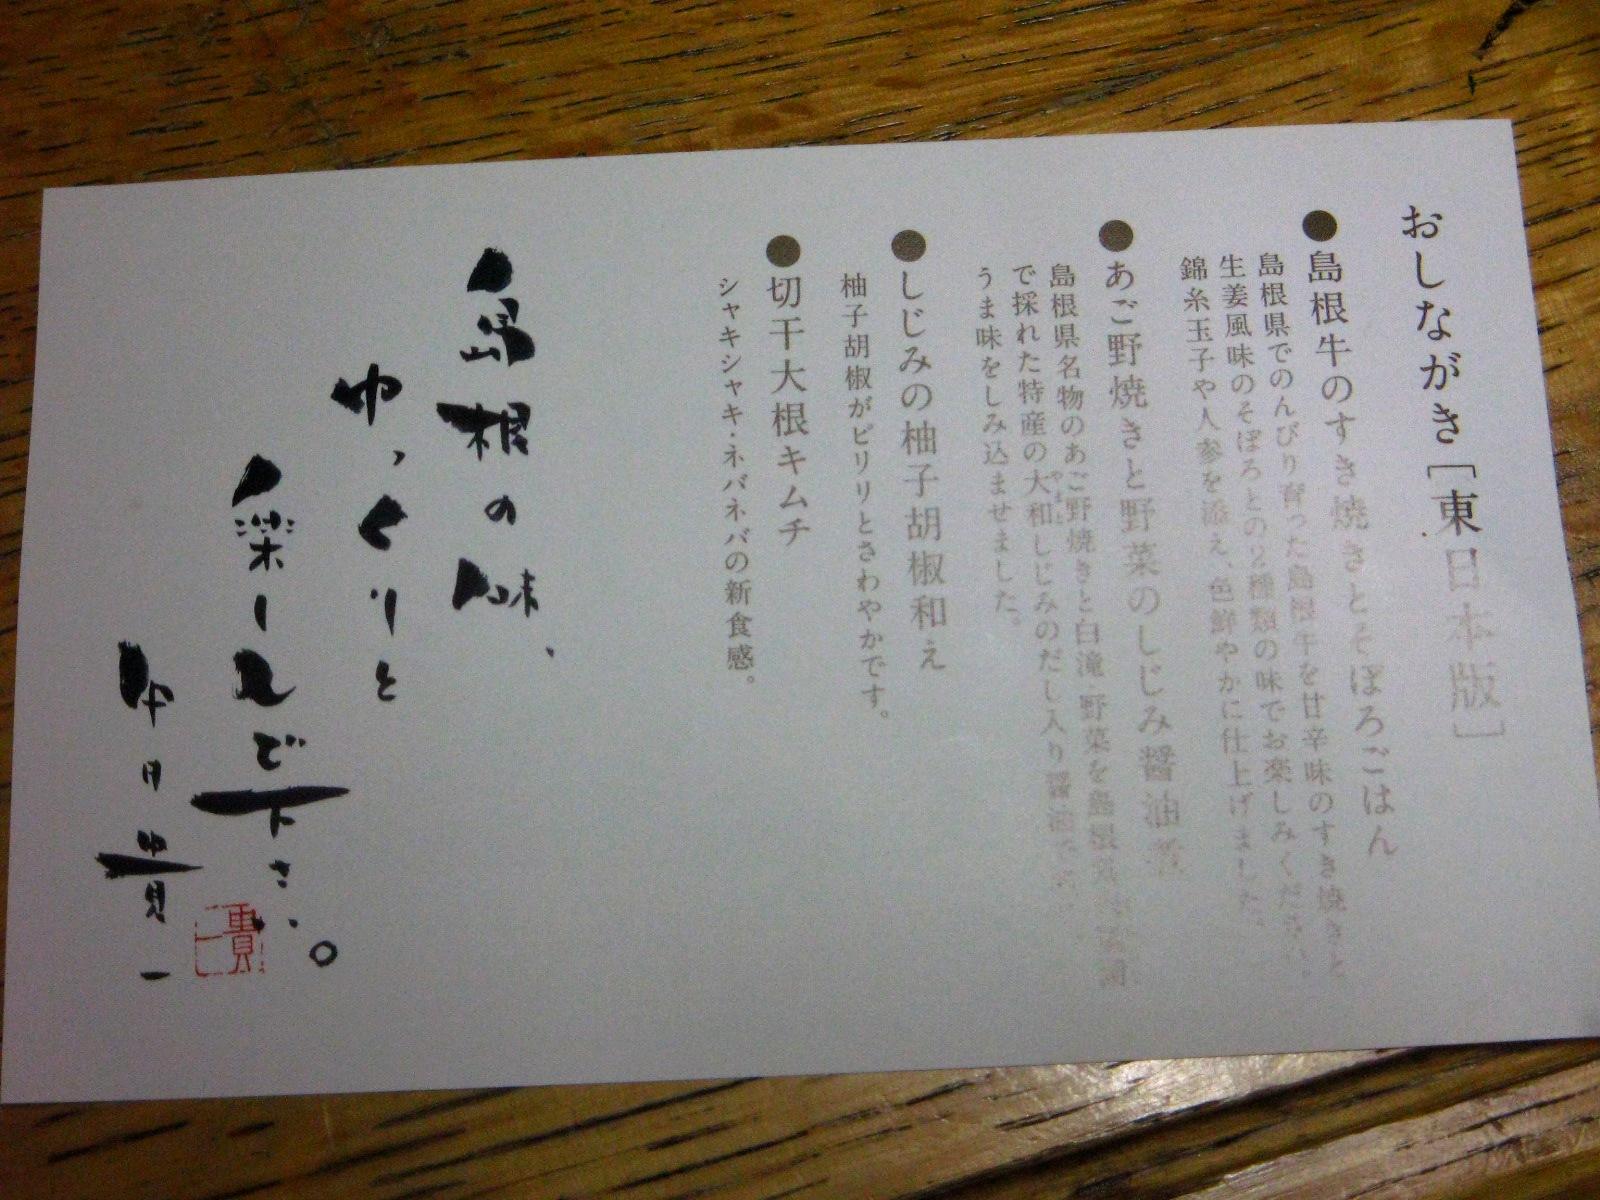 おしながき［東日本版］
●島根牛のすき焼きとそぼろごはん
島根県でのんびり育った島根牛を甘辛味のすき焼きと
生姜風味のそぼろとの2種類の味でお楽しみください。
錦糸玉子や人参を添え、色鮮やかに仕上げました。
●あご野焼きと野菜のしじみ醤油煮
島根県名物のあご野焼きと白滝、野菜を島根県
で採れた特産の大和しじみのだし入り醤油で
うま味をしみ込ませました。
●しじみの柚子胡椒和え
柚子胡椒がピリリとさわやかです。
●切干大根キムチ
シャキシャキ・ネバネバの新食感。
島根の味、
ゆっくりと
楽しんで下さい。
貴一